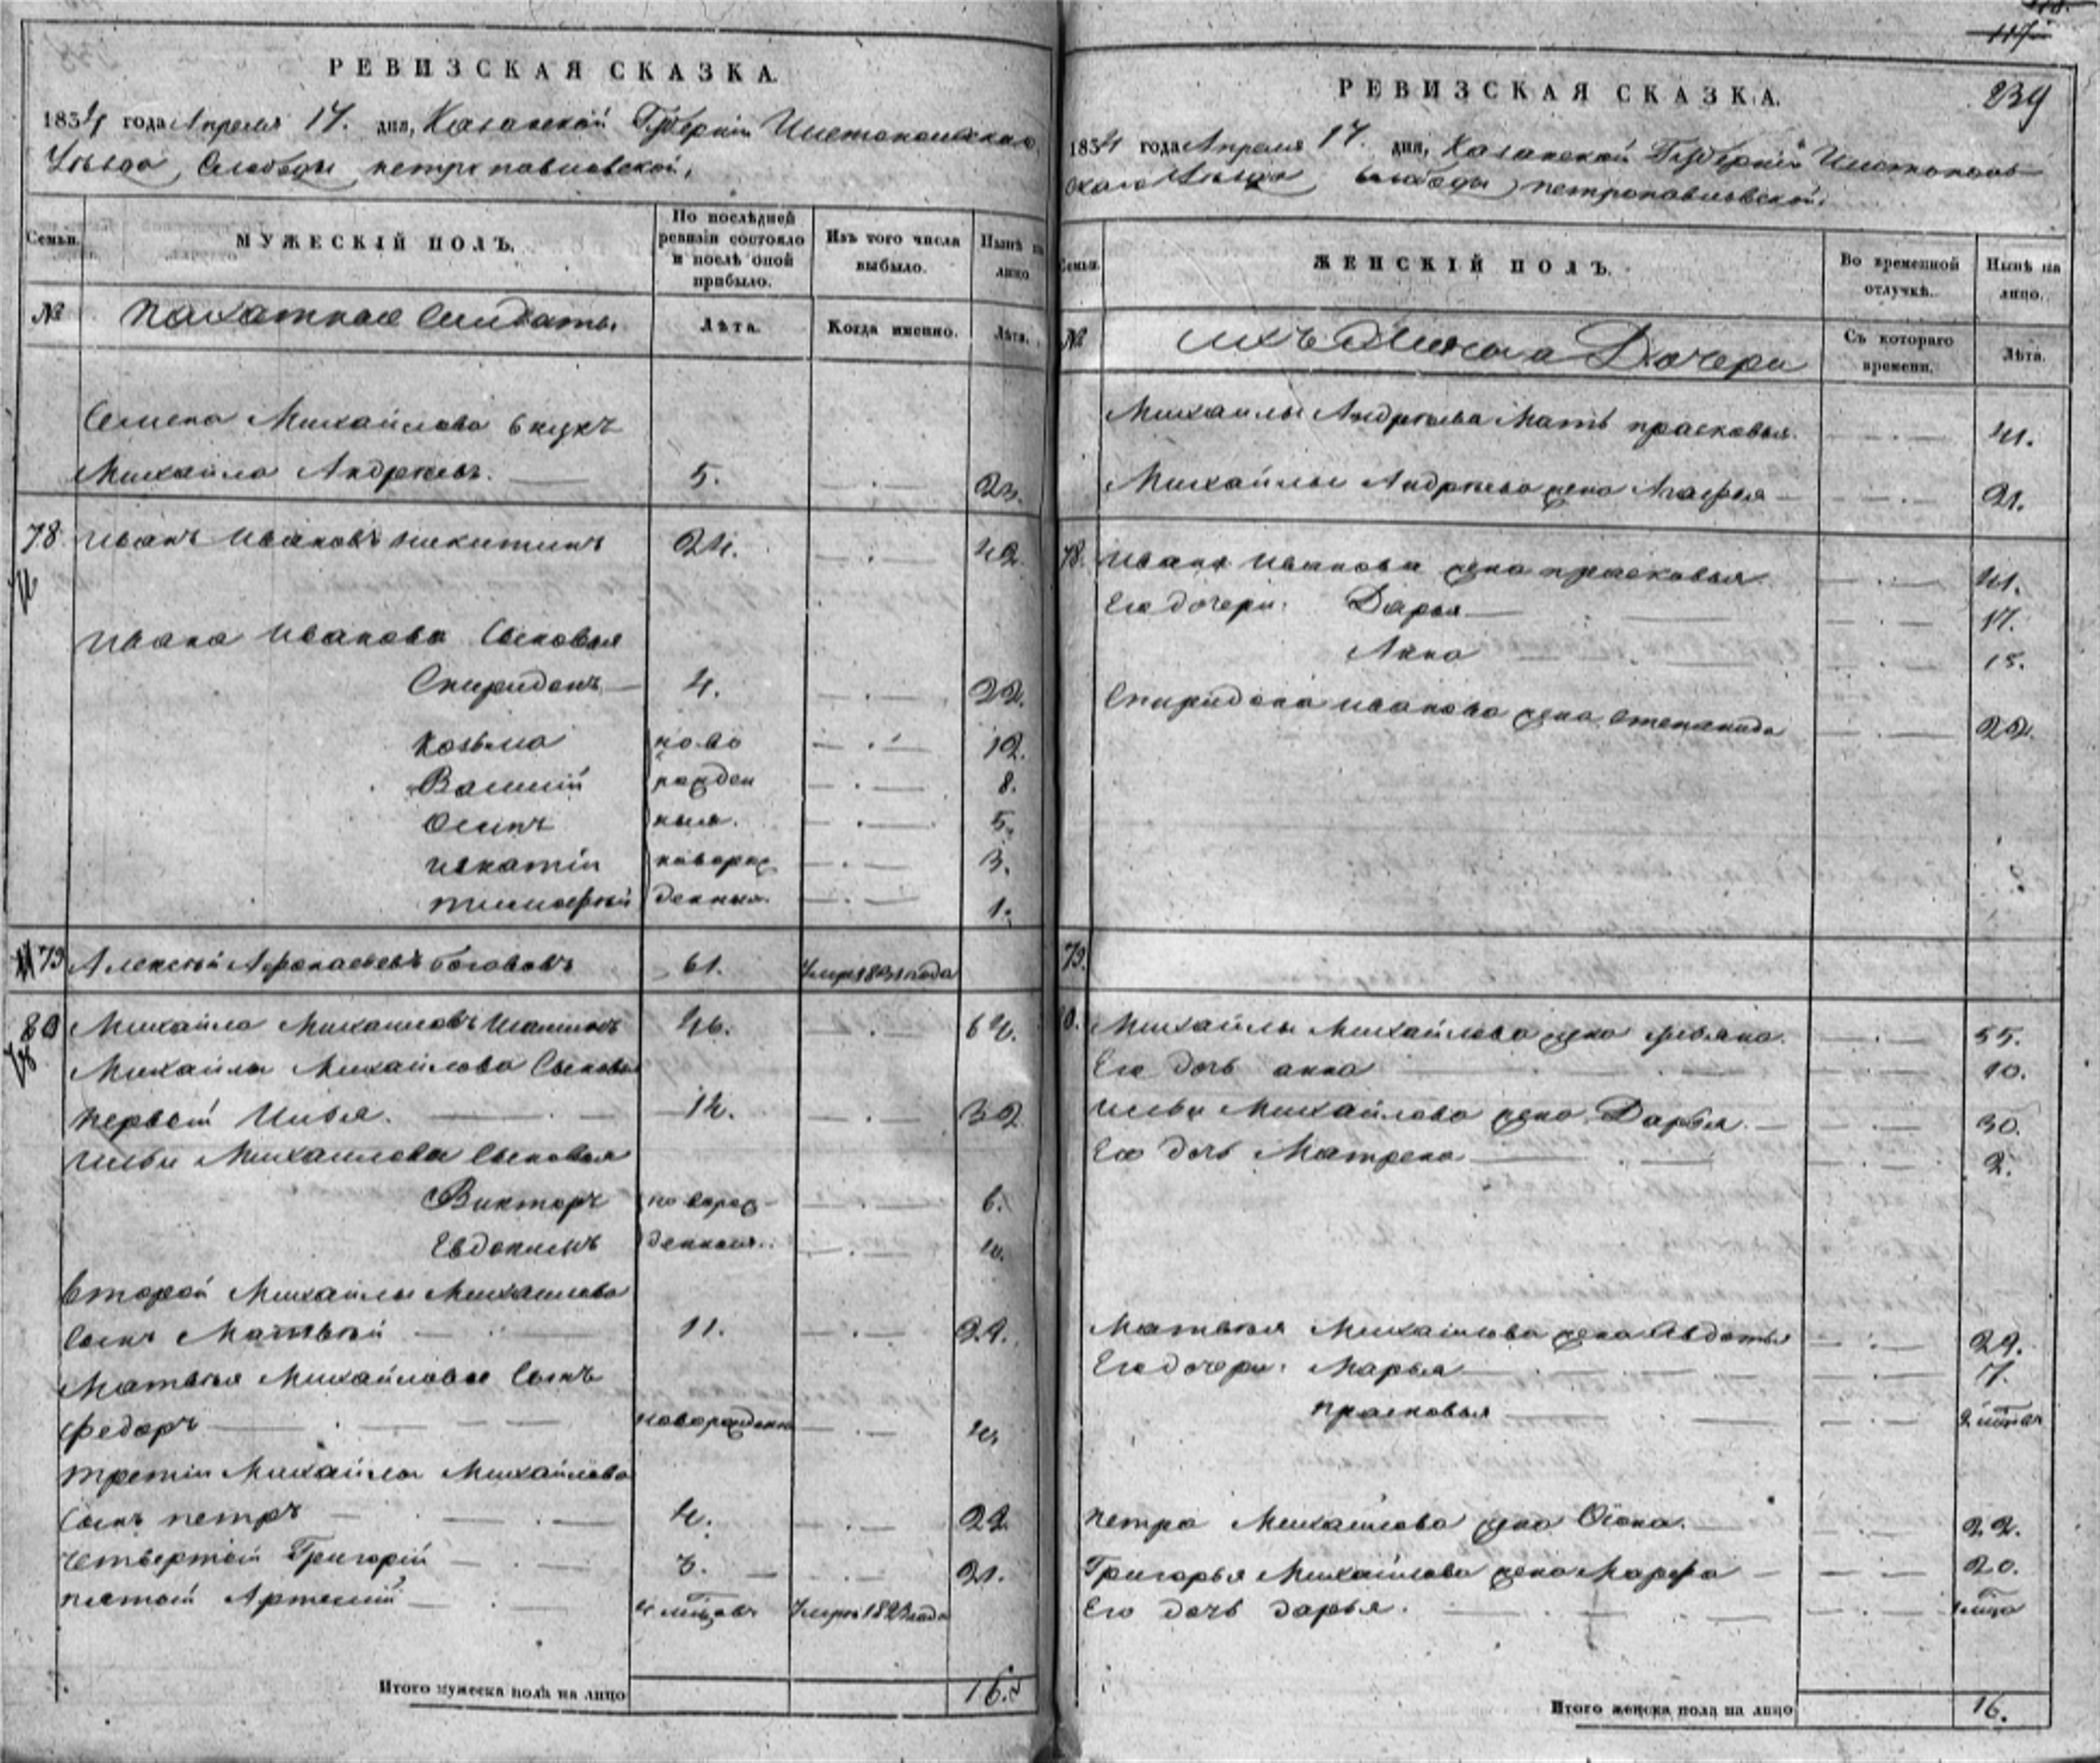 РЕВИЗСКАЯ СКАЗКА.
1834 года Апреля 17. дня, Казанской Губернии Чистопольскаго
Уезда, Слободы петропавловской,
Семьи.
МУЖЕСКІЙ ПОЛЪ.
По послѣдней ревизіи состояло и послѣ оной прибыло.
Изъ того числа выбыло.
Нынѣ на лицо
№
пахатные Солдаты.
Лѣта.
Когда именно.
Лѣта.
Семена Михайлова внукъ
Михайло Андреевъ. 5. 23.
78 Иванъ Ивановъ Никитинъ 24. 42
Ивана Иванова Сыновья
Спиридонъ 4. 22.
Козьма ново 12.
Василий рожден 8.
Осипъ ныя. 5.
Игнатій новорож 3.
тимофей денныя. 1.
79 Алексей Афонасьевъ 61. Умре 1831 года
80 Михайло Михайловъ Шашинъ 46. 64.
Михайлы Михайлова Сыновья
первой Илья. 14. 32
Ильи Михайлова Сыновья
Викторъ новорож 6.
Евдокимъ денныя. 4.
второй Михайлы Михайлова
Сынъ Матвей 11. 29.
Матвея Михайлова Сынъ
Федоръ новорожденн 4
третій Михайлы Михайлова
Сынъ петръ 4. 22
четвертой Григорій 3. 21.
пятой Артемий Умре 182 года
Итого мужеска полà на лицо 16.
117
239
РЕВИЗСКАЯ СКАЗКА.
1834 года Апреля 17. дня, Казанской Губерніи Чистополь
скаго Уезда, Слободы петропавловской.
Семьи.
ЖЕНСКІЙ ПОЛЪ.
Во временной отлучкѣ.
Нынѣ на лицо.
№
ихъ Жены и Дочери
Съ котораго времени.
Лѣта.
Михайлы Андреева Мать прасковья 41.
Михайлы Андреева жена Агафья 21.
78. Ивана Иванова жена прасковья 41.
Его дочери. Дарья 17.
Анна 15.
Спиридона Иванова жена степанида 22.
79.
80. Михайлы Михайлова жена 55.
Его дочь анна 10.
Ильи Михайлова жена Дарья 30.
Его дочь Матрена 2.
Матвея Михайлова жена Авдотья 29.
Его дочери. Марья 7.
прасковья
петра Михайлова жена 22.
Григорья Михайлова жена Марфа 20.
Его дочь дарья.
Итого женска пола на лицо 16.